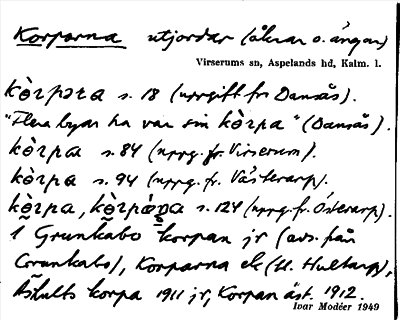 Korporna utjordar (åkrar o. ängar)
Virserums sn, Aspelands hd, Kalm. l.
kòrpəta s. 18 (uppgift fr. Dansås).
"Flera byar ha var sin kòrpa" (Dansås).
kòrpa s. 84 (uppg. fr. Virserum).
kòrpa s. 94 (uppg. fr. Västerarp).
kòrpa, s. 124 (uppg. fr. Österarp).
1 Grunkabo korpan jr (avs. från
Crunkabo), Korparna ek (U. Hultarp),
Åshults korpa 1911 jr, Korpan äst. 1912.
Ivar Modéer 1949